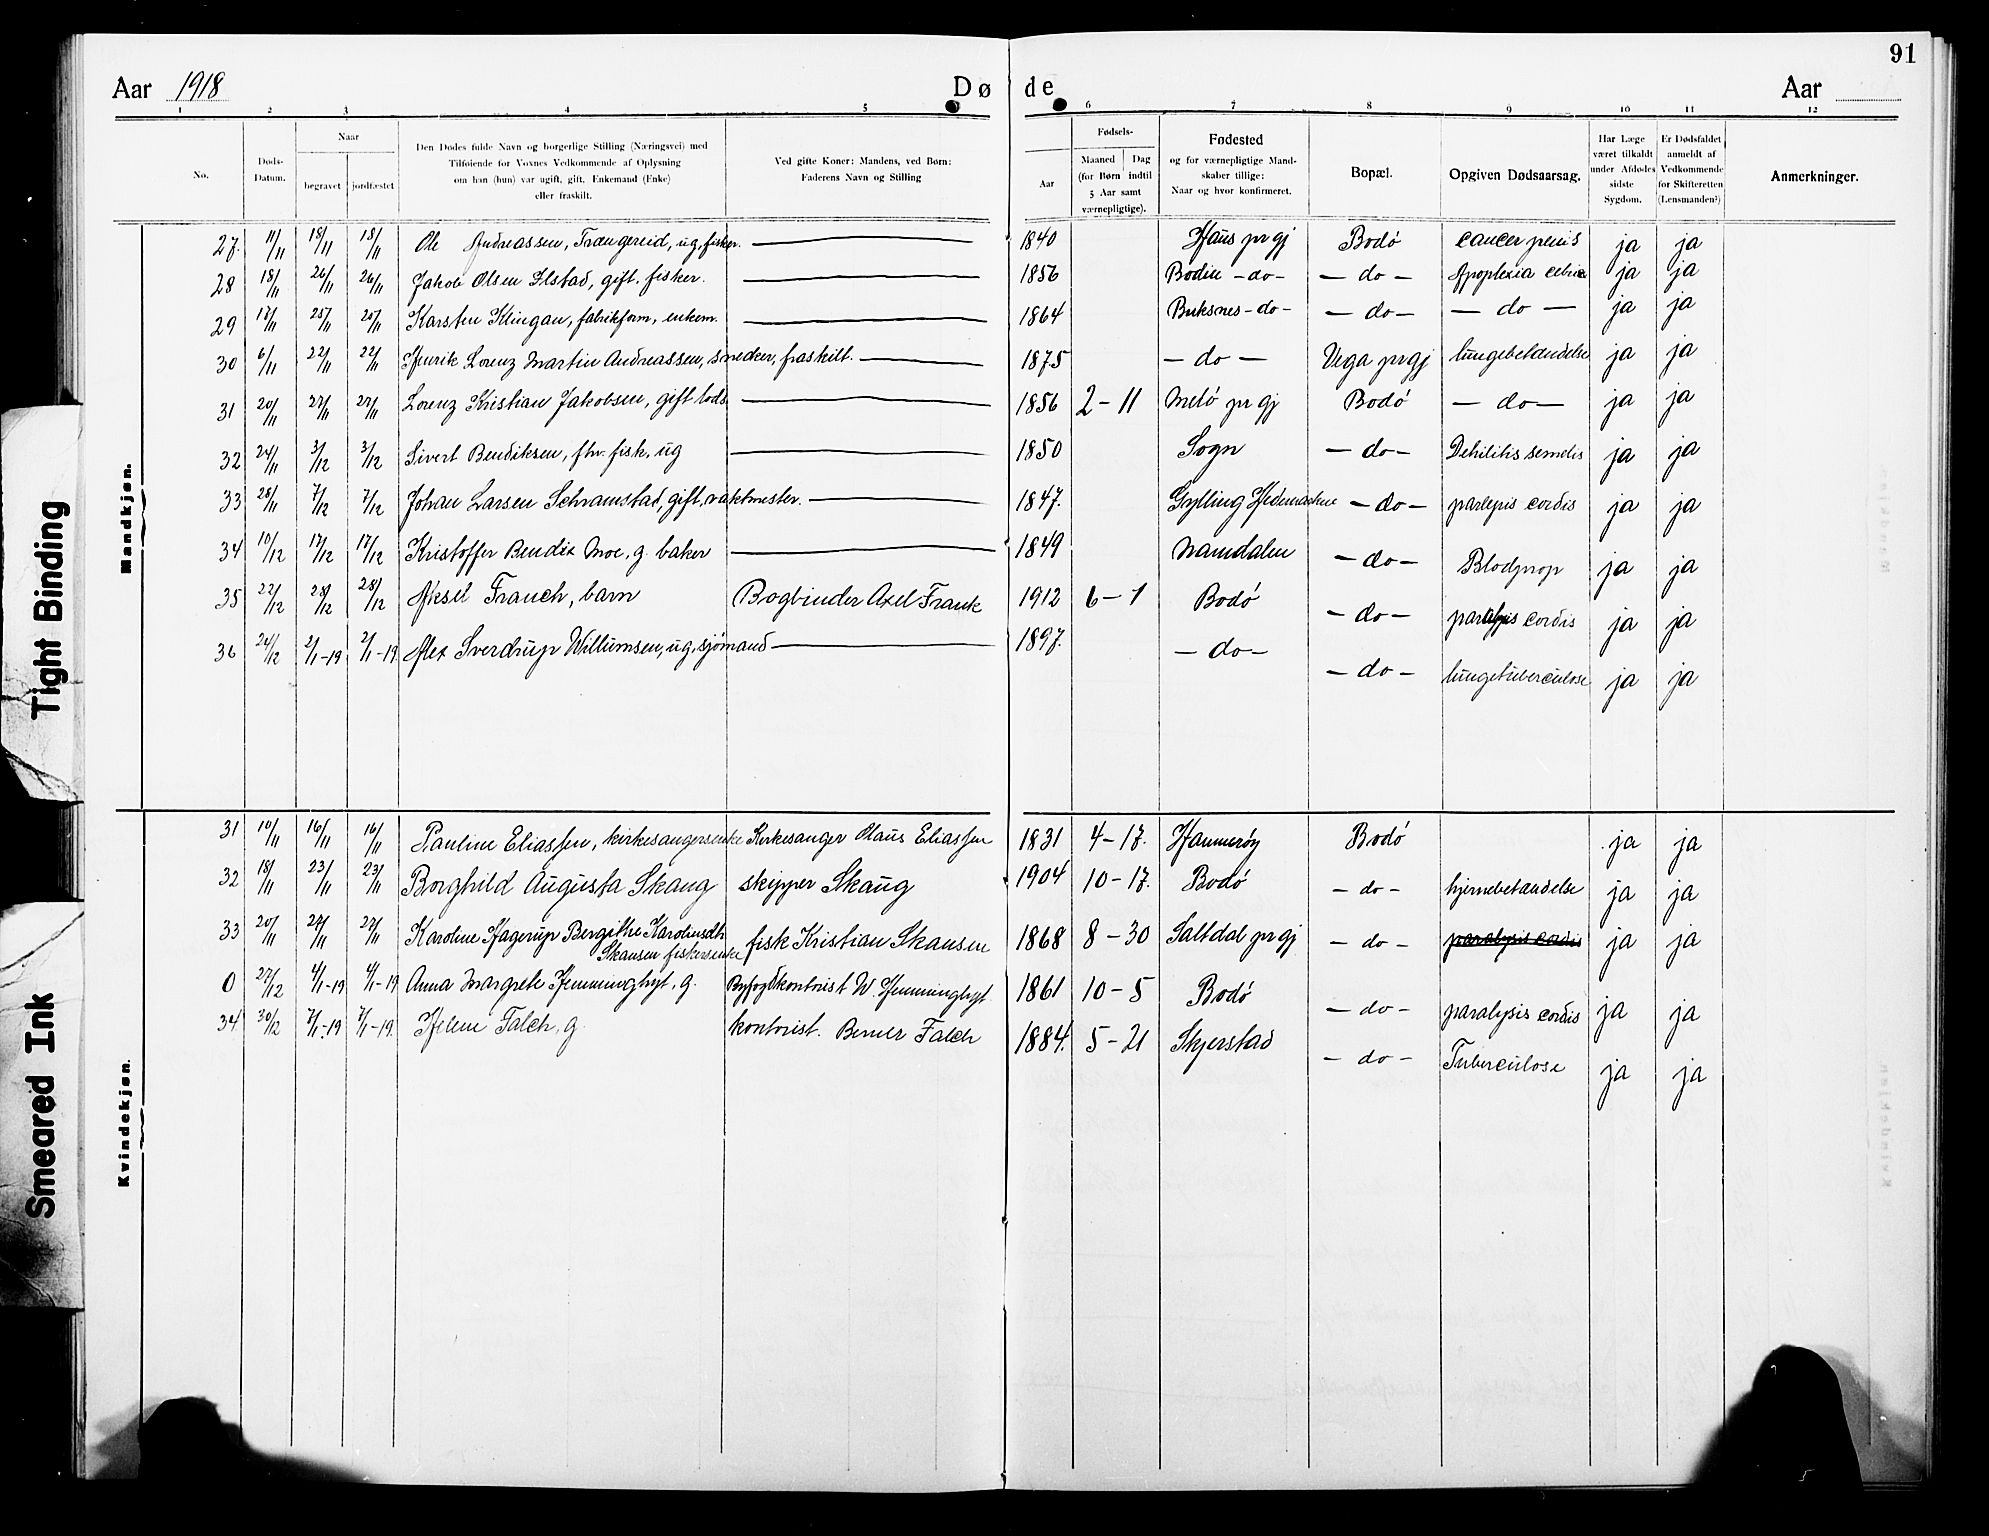 91
Aar 1918 Døde Aar
1 2 3 4 5 6 7 8 9 10 11 12
No.
Døds-Datum.
Naar
begravet jordfæstet
Den Dødes fulde Navn og borgerlige Stilling (Næringsvei) med
Tilføiende for Voxnes Vedkommende af Oplysning
om han (hun) var ugift, gift, Enkemand (Enke)
eller fraskilt.
Ved gifte Koner: Mandens, ved Børn:
Faderens Navn og Stilling
Aar
Fødsels-
Maaned Dag
(for Børn indtil
5 Aar samt
værnepligtige).
Fødested
og for værnepligtige Mand-
skaber tillige:
Naar og hvor konfirmeret.
Bopæl.
Opgiven Dødsaarsag.
Har Læge
været tilkaldt
under Afdødes
sidste
Sygdom.
Er Dødsfaldet
anmeldt af
Vedkommende
for Skifteretten
(Lensmanden?)
Anmerkninger.
Mandkjøn.
27. 11/11 18/11 18/11 Ole Andreassen, Trængereid, ug, fisker. — 1840 Haus pr gj Bodó cancer penis ja ja
28 18/11 26/11 26/11 Jakob Olsen Ilstad, gift. fisker. — 1856 Bodin -do- - do - Apoplexia ja ja
29 25/11 Karsten Klingan, fabrikform, enkem. — 1864 Buksnes -do- - do - - do - ja ja
30 6/11 22/11 22/11 Henrik Lorenz Martin Andreassen, snedker, fraskilt. — 1875 - do - Vega pr gj lungebetændelse ja ja
31 20/11 27/11 27/11 Lorenz Kristian Jakobsen, gift lods — 1856 2-11 Meló pr gj Bodó - do - ja ja
32 24/11 3/12 3/12 Sivert Bendiksen, fhv. fisk, ug — 1850 Sogn - do - ja ja
33 28/11 7/12 7/12 Johan Larsen Schramstad, gift, vaktmester. — 1847. - do - cordis ja ja
34 10/12 17/12 17/12 Kristoffer Bendix Moe, g. baker — 1849 Namdalen - do - Blodprop ja ja
35 22/12 28/12 28/12 Aksel Franck, barn Bogbinder Axel Frank 1912 6-1 Bodó - do - paralysis cordis ja ja
36 24/12 2/1-19 2/1-19 Alex Sverdrup Willumsen, ug, sjómand — 1897. - do - - do - lungetuberculose ja ja
Kvindekjøn.
31 10/11 16/11 16/11 Pauline Eliassen, kirkesangersenke Kirkesanger Olaus Eliassen 1831 4-17. Hammeröy Bodó ja ja
32 18/11 23/11 23/11 Borghild Augusta Skaug skipper Skaug 1904 10-17. Bodó - do - hjernebetændelse ja ja
33 20/11 27/11 27/11 Karoline Hagerup Bergithe Karolinsdtr
Skansen fiskersenke fisk Kristian Skansen 1868 8-30 Saltdal pr gj - do - paralysis cordis ja ja
0 27/12 4/1-19 4/1-19 Anna Margrete Hemminghyt, g. Byfogdkontorist W. Hemminghyt. 1861 10-5 Bodó - do - paralysis cordis ja ja
34 30/12 7/1-19 7/1-19. Helene Falch, g. kontorist. Berner Falch 1884. 5-21 Skjerstad - do - Tuberculose ja ja
Tight Binding
Smeared Ink